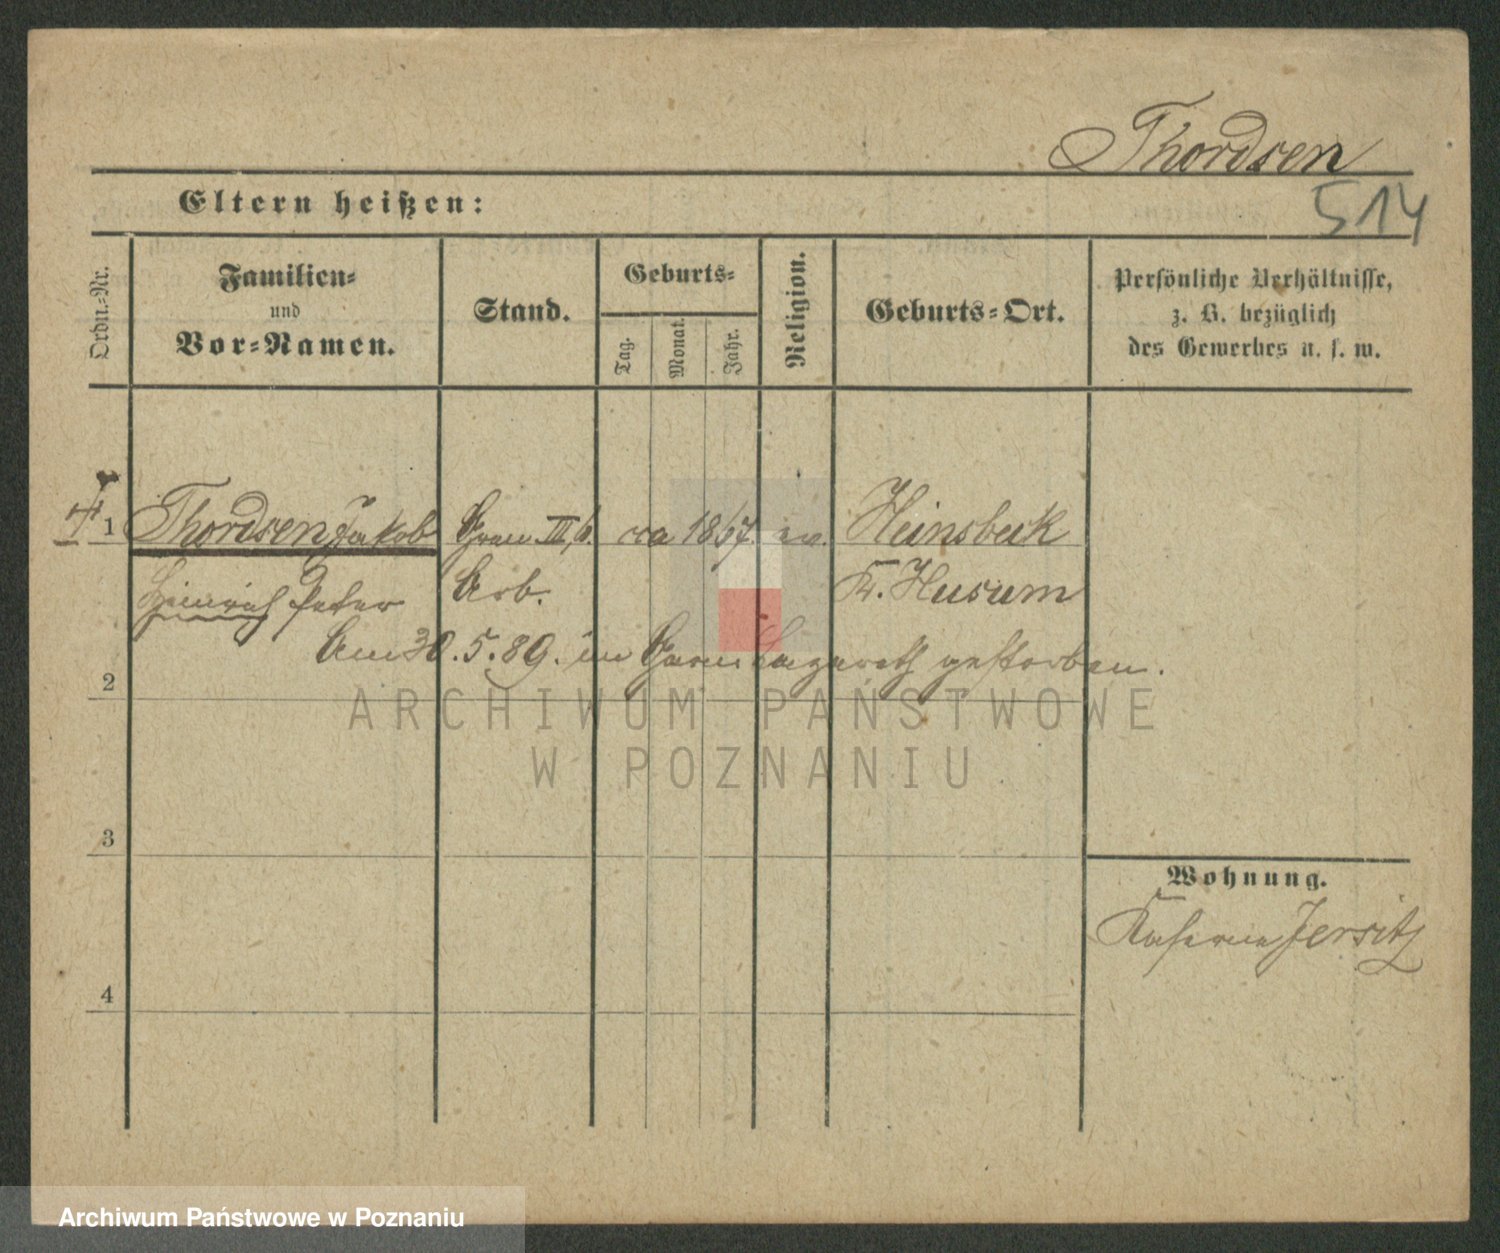 Thordsen
Eltern heißen:
514
Ordn.-Nr.
Familien-
und
Vor-Namen.
Stand.
Geburts-
Tag.
Monat.
Jahr.
Religion.
Geburts-Ort.
Persönliche Verhältnisse,
z. B. bezüglich
des Gewerbes u. s. w.
1 Thordsen Jakob Gren III, 6. ca 1867. ev. Heinsbeck
Heinrich Peter Arb. Kr. Husum
Am 30.5.89. im Garn Lazareth gestorben.
2
ARCHIWUM PAŃSTWOWE
W POZNANIU
3
Wohnung.
Kaserne Jersitz
4
Archiwum Państwowe w Poznaniu